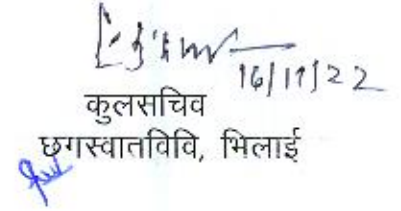 16/11/22
कुलसचिव
छगस्वातविवि, भिलाई